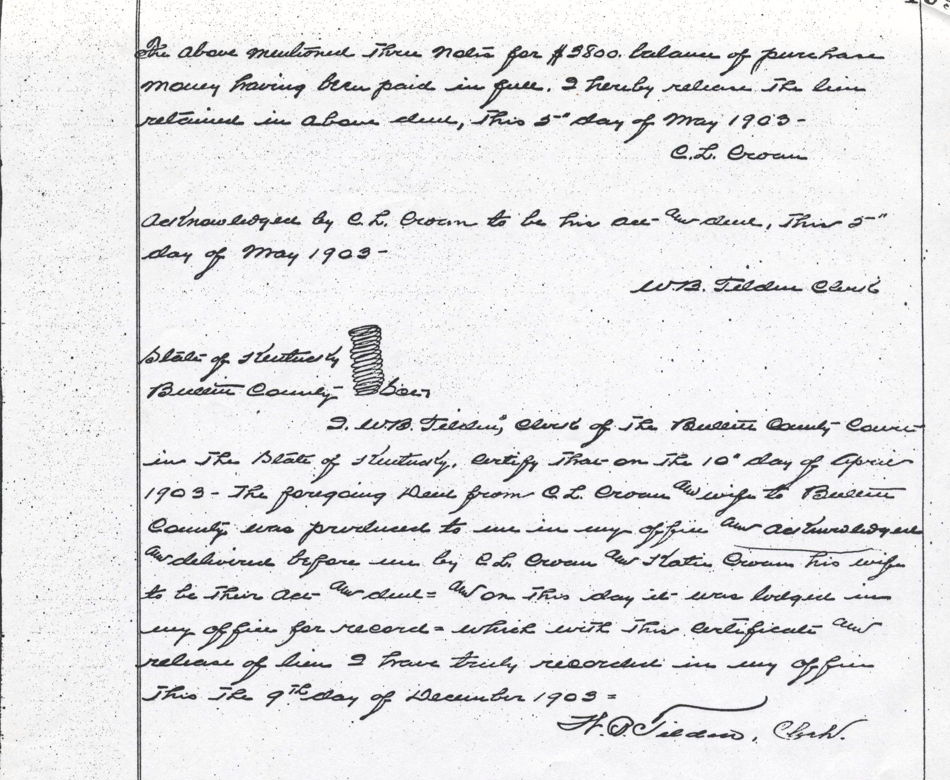 The above mentioned three notes for $3800. balance of purchase
money having been paid in full. I hereby release the lien
retained in above deed, this 5" day of May 1903-
C.L. Croan
Acknowledged by C.L. Croan to be his act and deed, this 5"
day of May 1903-
W.B. Tilden Clerk
State of Kentucky
Bullitt County
I. W.B. Tilden, Clerk of the Bullitt County Court
in the State of Kentucky, certify that on the 10" day of April
1903- the foregoing Deed from C.L. Croan and wife to Bullitt
County was produced to me in my office and acknowledged
and delivered before me by C.L. Croan and Katie Croan his wife
to be their act and deed= and on this day it was lodged in
my office for record= which with this certificate and
release of lien I have truly recorded in my office
this the 9th day of December 1903=
W.B. Tilden, Clerk.